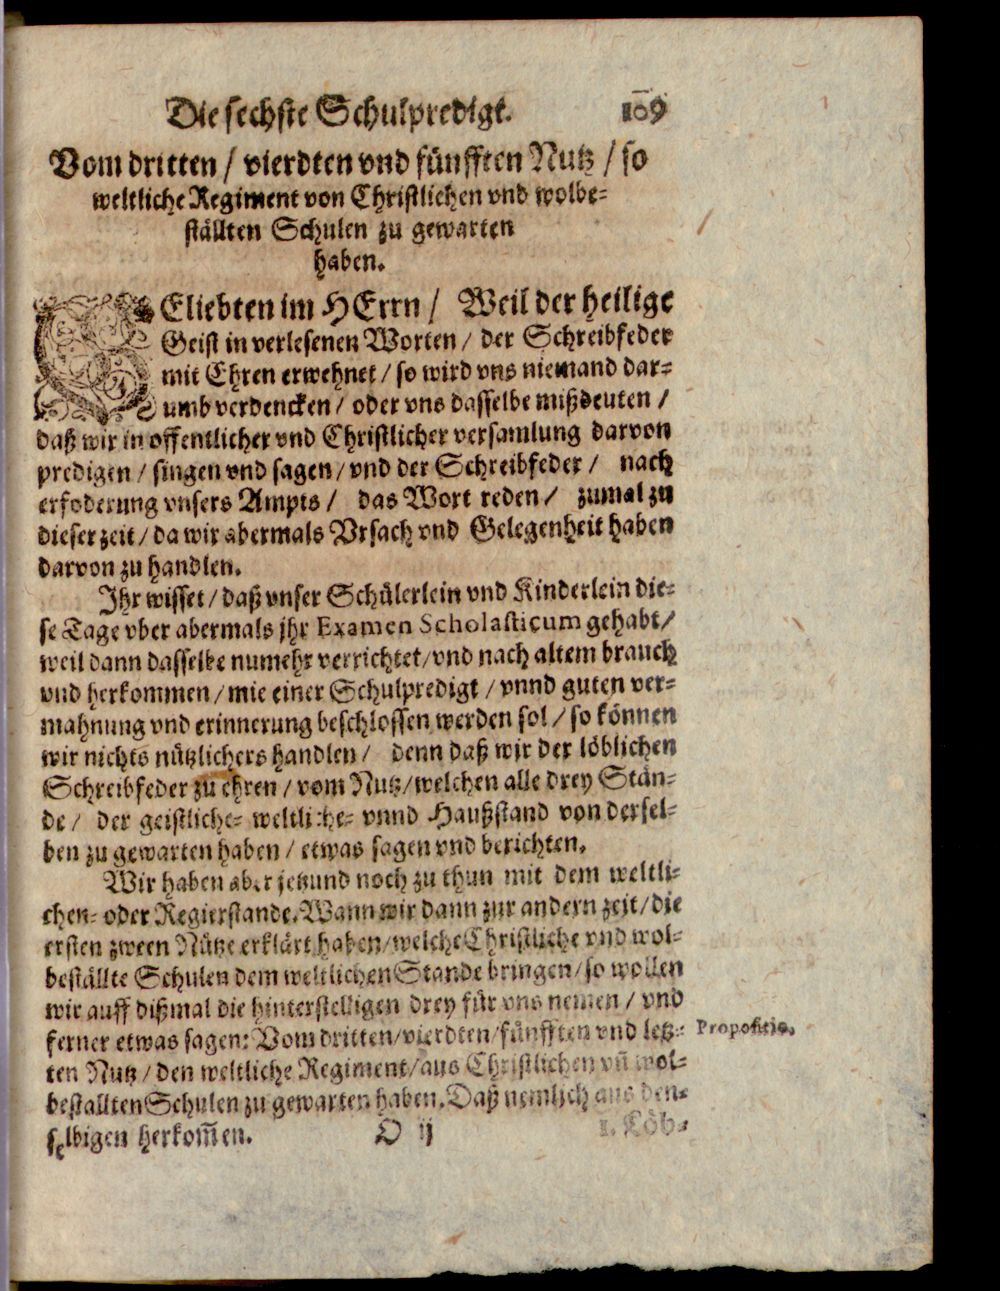 Die sechste Schulpredigt. 109
Vom dritten / vierdten vnd fünfften Nutz / so
weltliche Regiment von Christlichen vnd wolbe-
ställten Schulen zu gewarten
haben.
GEliebten im HErrn / Weil der heilige
Geist in verlesenen Worten / der Schreibfeder
mit Ehren erwehnet / so wird vns niemand dar-
umb verdencken / oder vns dasselbe mißdeuten /
daß wir in offentlicher vnd Christlicher versamlung darvon
predigen / singen vnd sagen / vnd der Schreibfeder / nach
erfoderung vnsers Ampts / das Wort reden / zumal zu
dieser zeit / da wir abermals Vrsach vnd Gelegenheit haben
darvon zu handlen.
Ihr wisset / daß vnser Schülerlein vnd Kinderlein die-
se Tage vber abermals jhr Examen Scholasticum gehabt /
weil dann dasselbe numehr verrichtet / vnd nach altem brauch
vnd herkommen / mit einer Schulpredigt / vnnd guten ver-
mahnung vnd erinnerung beschlossen werden sol / so können
wir nichts nützlichers handlen / denn daß wir der löblichen
Schreibfeder zu ehren / vom Nutz / welchen alle drey Stän-
de / der geistliche- weltliche- vnnd Haußstand von dersel-
ben zu gewarten haben / etwas sagen vnd berichten.
Wir haben aber jetzund noch zu thun mit dem weltli-
chen- oder Regierstande. Wann wir dann zur andern zeit / die
ersten zween Nütze erklärt haben / welche Christliche vnd wol-
beställte Schulen dem weltlichen Stande bringen / so wollen
wir auff dißmal die hinterstelligen drey für vns nemen / vnd
ferner etwas sagen: Vom dritten / vierdten / fünfften vnd letz- Propositio.
ten Nutz / den weltliche Regiment / aus Christlichen vñ wol-
bestallten Schulen zu gewarten haben. Daß nemlich aus den-
selbigen herkom̃en. O ij 1. Löb-